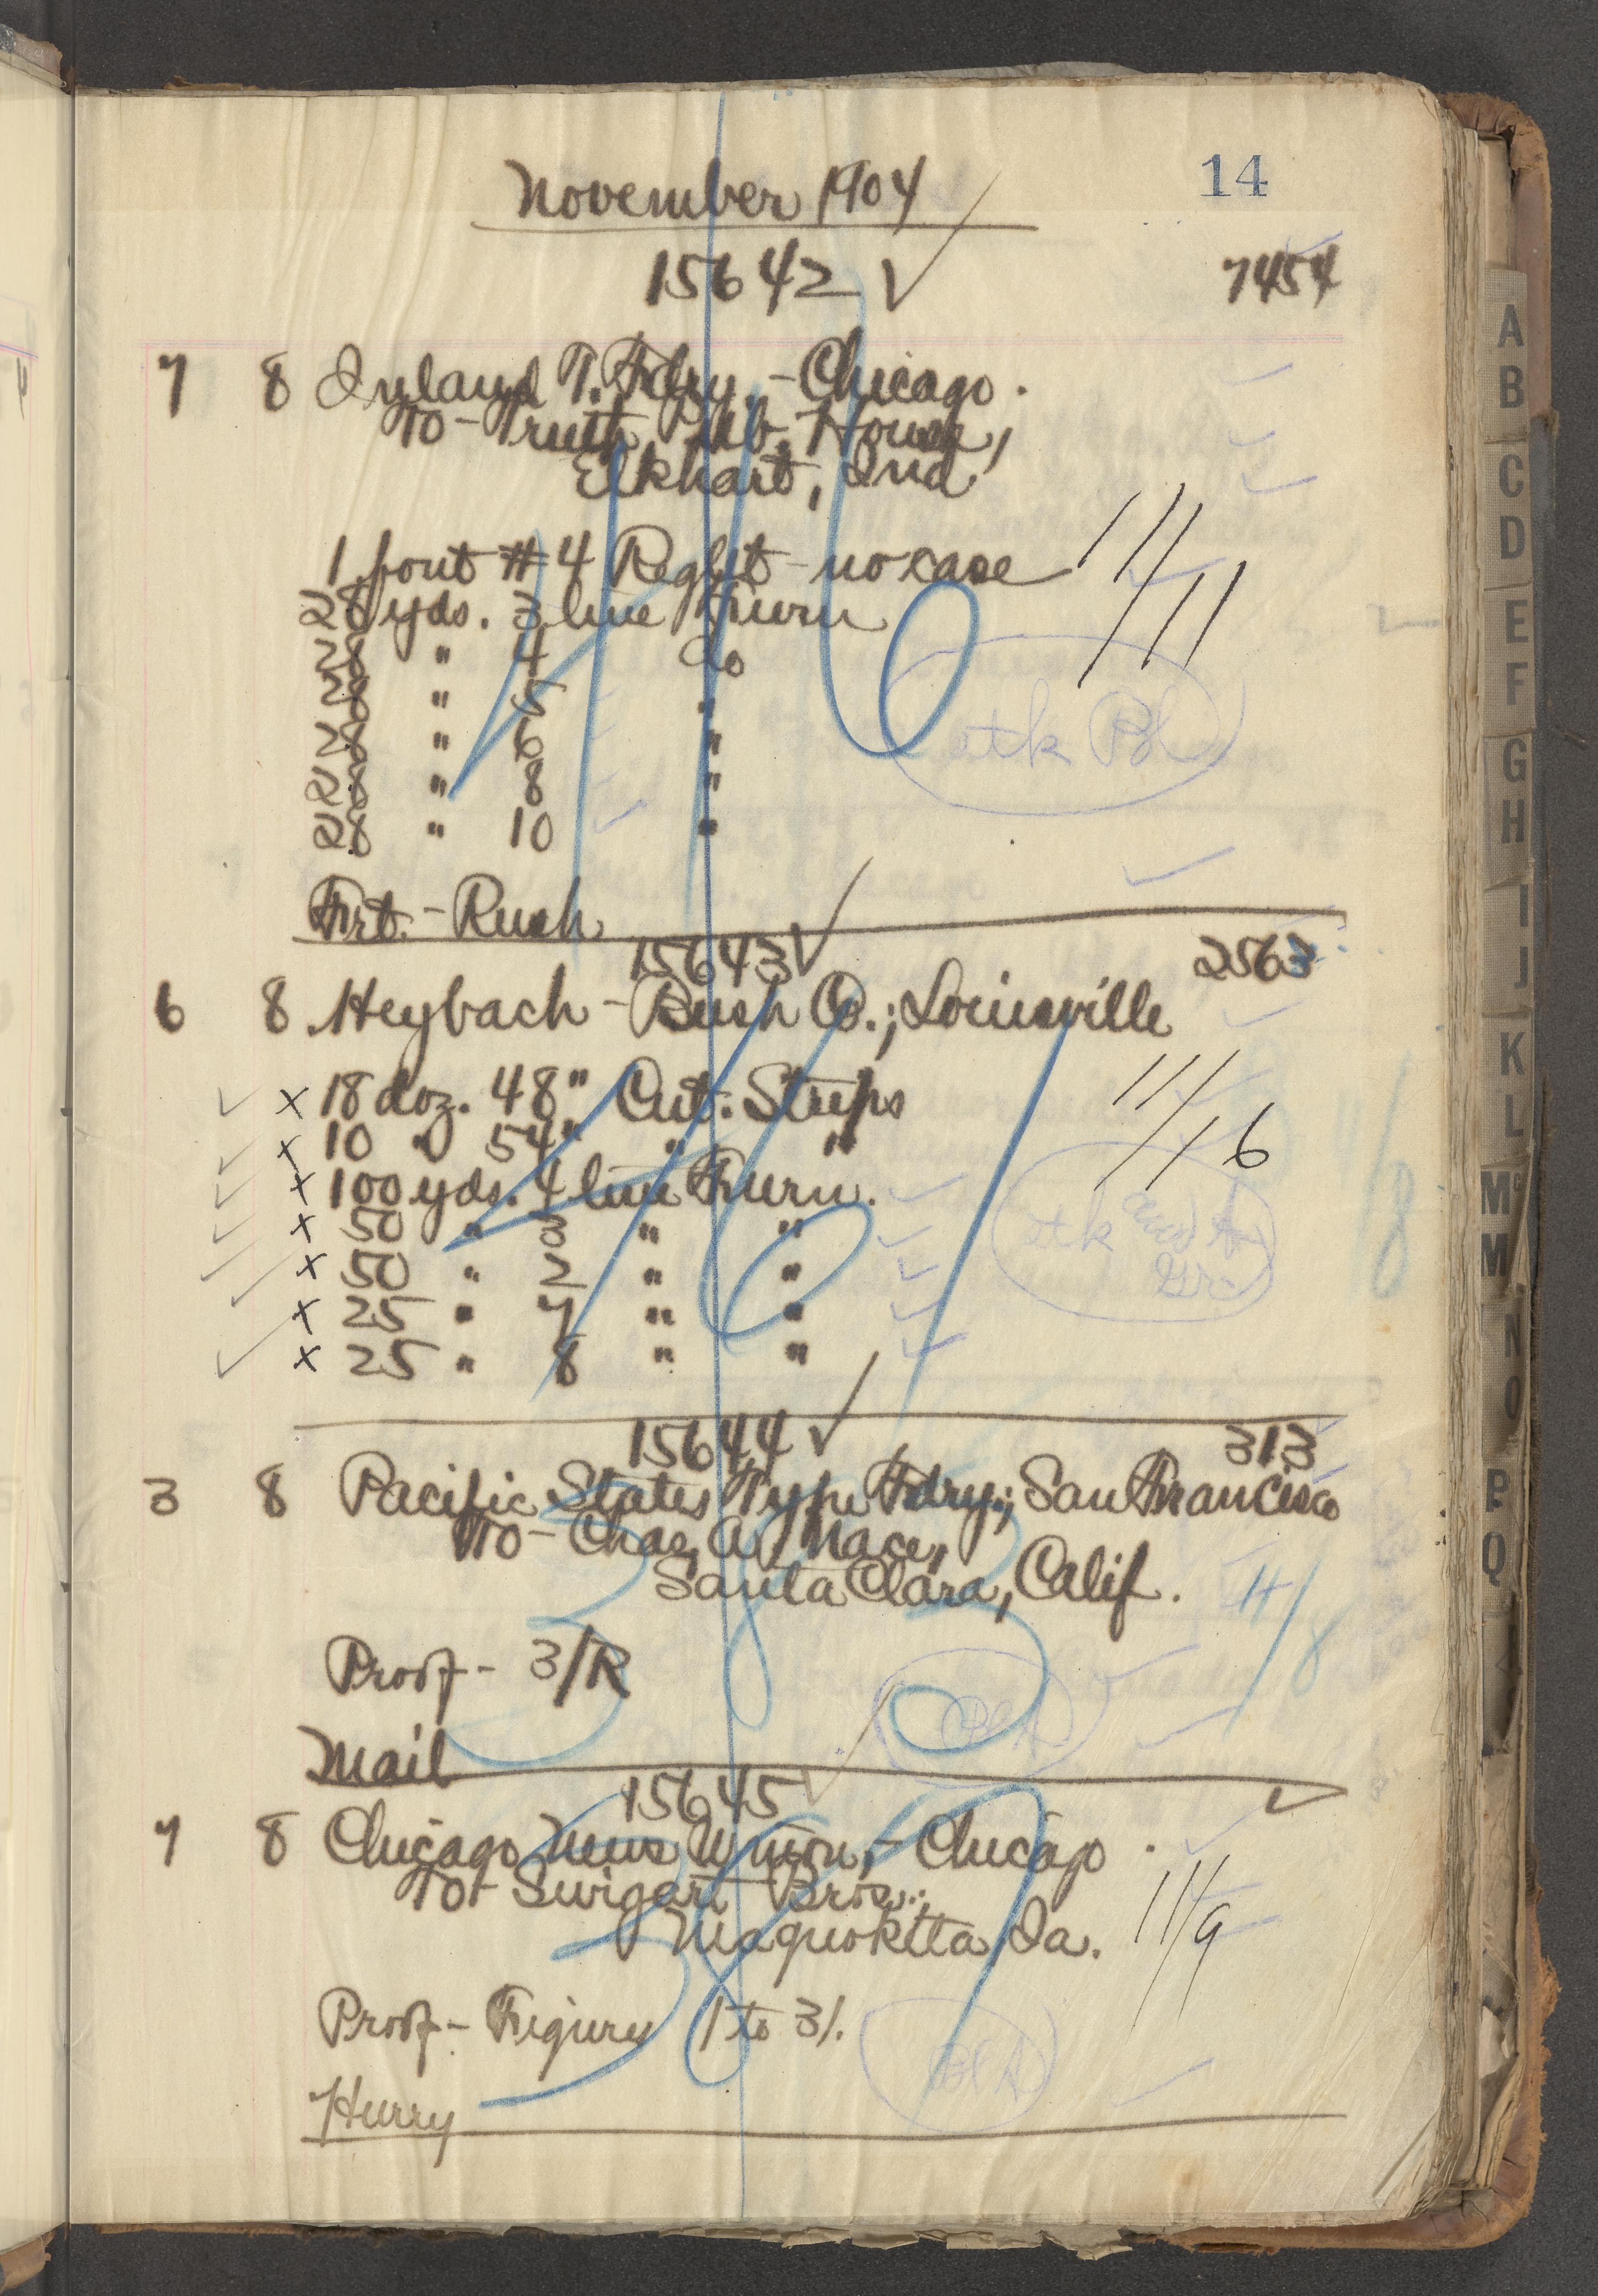 14
November 1904
15642 ✓ 7454
7 8 Inland T. Fdry. - Chicago.
To - Truth Pub. House,
Elkhart, Ind.
1 font #4 Reglet - no case 11/11
28 yds. 3 line Furn
28 " 4 do
28 " 5 "
28 " 6 "
28 " 8 "
28 " 10 "
stk
Frt. - Rush
15643 ✓ 2563
6 8 Heybach - Bush Co.; Louisville
x 18 doz. 48" Cut. Strips 11/16
x 10 " 54" " "
x 100 yds. 4 line Furn.
x 50 " 3 " "
x 50 " 2 " "
x 25 " 7 " "
x 25 " 8 " "
stk
11/8
15644 ✓ 313
3 8 Pacific States Type Fdry.; San Francisco
To - Chas. A. Nace,
Santa Clara, Calif. 11/8
Proof - 3/R
383
Mail
15645 ✓
7 8 Chicago News Union, - Chicago.
To - Swigart Bros.;
Maquoketa, Ia. 11/9
Proof - Figures 1 to 31.
387
Hurry
A
B
C
D
E
F
G
H
I
J
K
L
Mc
M
N
O
P
Q